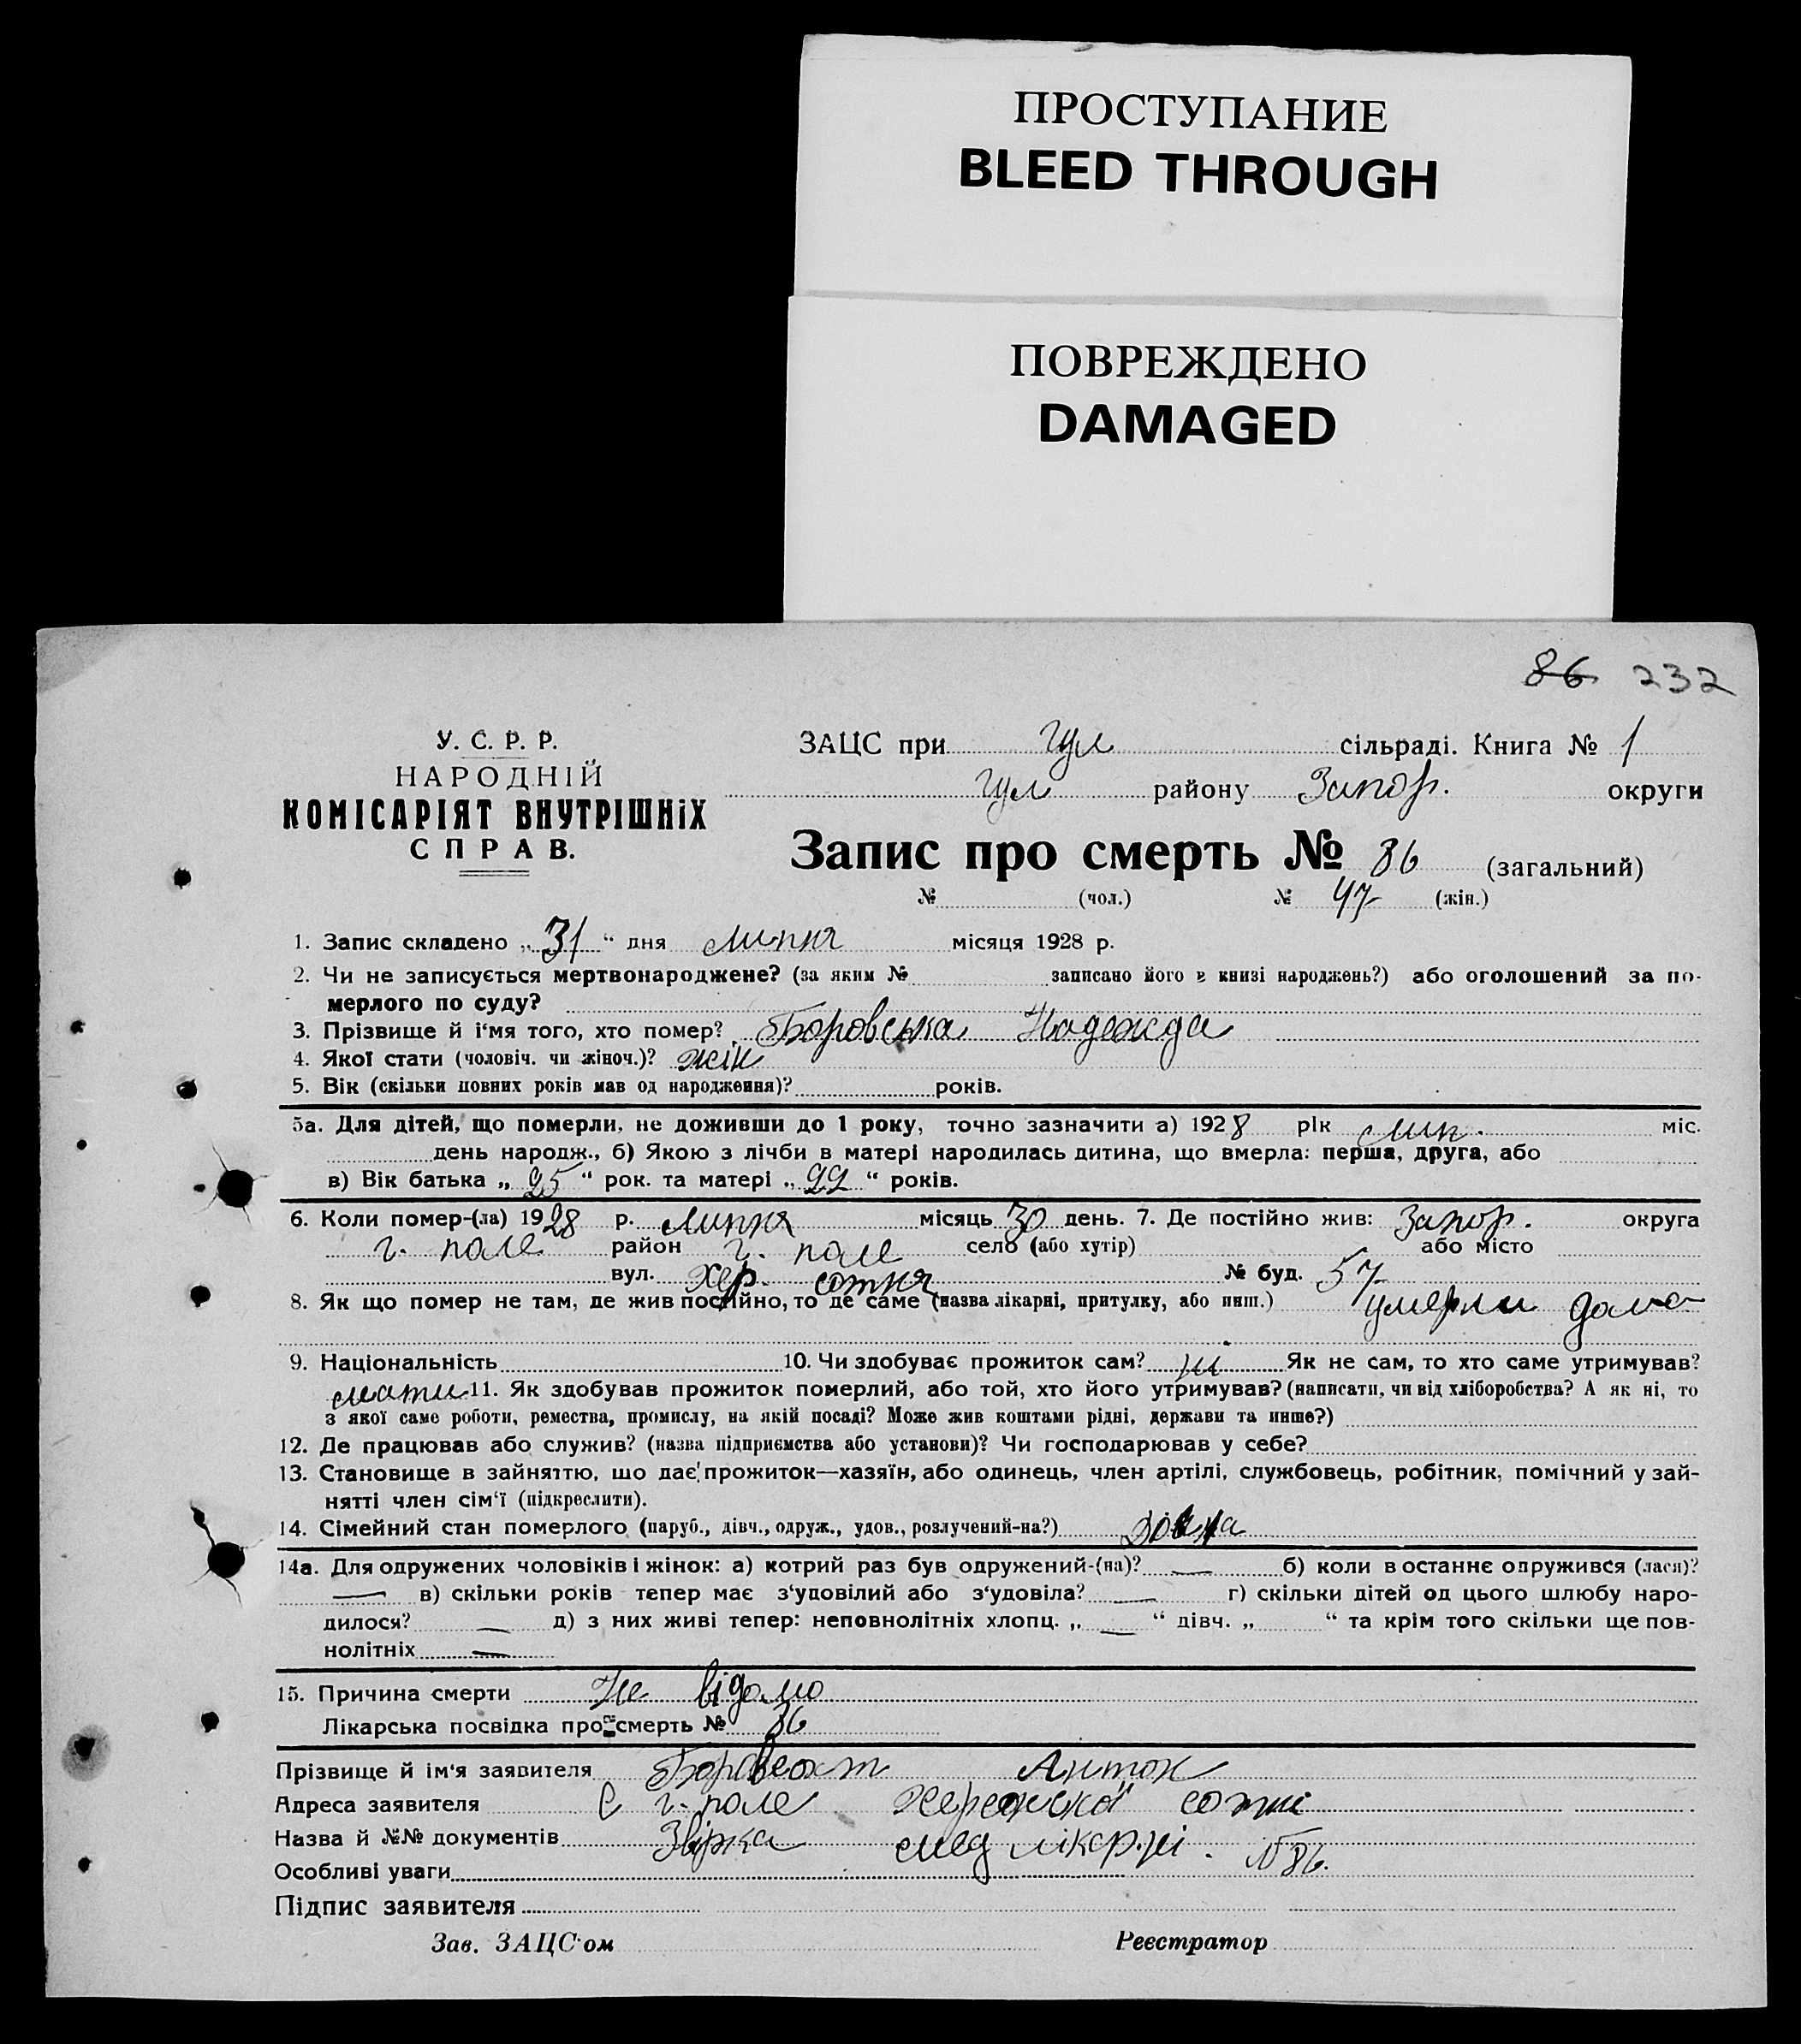 ПРОСТУПАНИЕ
BLEED THROUGH
ПОВРЕЖДЕНО
DAMAGED
86 232
У. С. Р. Р.
НАРОДНІЙ
КОМІСАРІЯТ ВНУТРІШНІХ
СПРАВ.
ЗАЦС при Гул сільраді. Книга № 1
Гул району Запор. округи
Запис про смерть № 86 (загальний)
№ (чол.) № 47 (жін.)
1. Запис складено „ 31 “ дня липня місяця 1928 р.
2. Чи не записується мертвонароджене? (за яким № записано його в книзі народжень?) або оголошений за по-
мерлого по суду?
3. Прізвище й і‘мя того, хто помер? Боровська Надежда
4. Якої стати (чоловіч. чи жіноч.)? жін
5. Вік (скільки повних років мав од народження)? років.
5а. Для дітей, що померли, не доживши до 1 року, точно зазначити а) 1928 рік лип. міс.
день народж., б) Якою з лічби в матері народилась дитина, що вмерла: перша, друга, або
в) Вік батька „ 25 “ рок. та матері „ 22 “ років.
6. Коли помер-(ла) 1928 р. липня місяць 30 день. 7. Де постійно жив: Запор. округа
г. поле район г. поле село (або хутір) або місто
вул. Хер. сотня № буд. 57
8. Як що помер не там, де жив постійно, то де саме (назва лікарні, притулку, або инш.) умерли дома
9. Національність 10. Чи здобуває прожиток сам? ні Як не сам, то хто саме утримував?
мати 11. Як здобував прожиток померлий, або той, хто його утримував? (написати, чи від хліборобства? А як ні, то
з якої саме роботи, ремества, промислу, на якій посаді? Може жив коштами рідні, держави та инше?)
12. Де працював або служив? (назва підприємства або установи)? Чи господарював у себе?
13. Становище в зайняттю, що дає прожиток—хазяїн, або одинець, член артілі, службовець, робітник, помічний у зай-
нятті член сім‘ї (підкреслити).
14. Сімейний стан померлого (паруб., дівч., одруж., удов., розлучений-на?)
14а. Для одружених чоловіків і жінок: а) котрий раз був одружений-(на)? — б) коли в останнє одружився (лася)?
— в) скільки років тепер має з‘удовілий або з‘удовіла? — г) скільки дітей од цього шлюбу наро-
дилося? — д) з них живі тепер: неповнолітніх хлопц. „ — “ дівч. „ “ та крім того скільки ще пов-
нолітніх —
15. Причина смерти Не відомо
Лікарська посвідка про смерть № 86
Прізвище й ім‘я заявителя Антон
Адреса заявителя С г. поле Херсонской сотні
Назва й №№ документів № 86.
Особливі уваги
Підпис заявителя
Зав. ЗАЦС‘ом Реєстратор